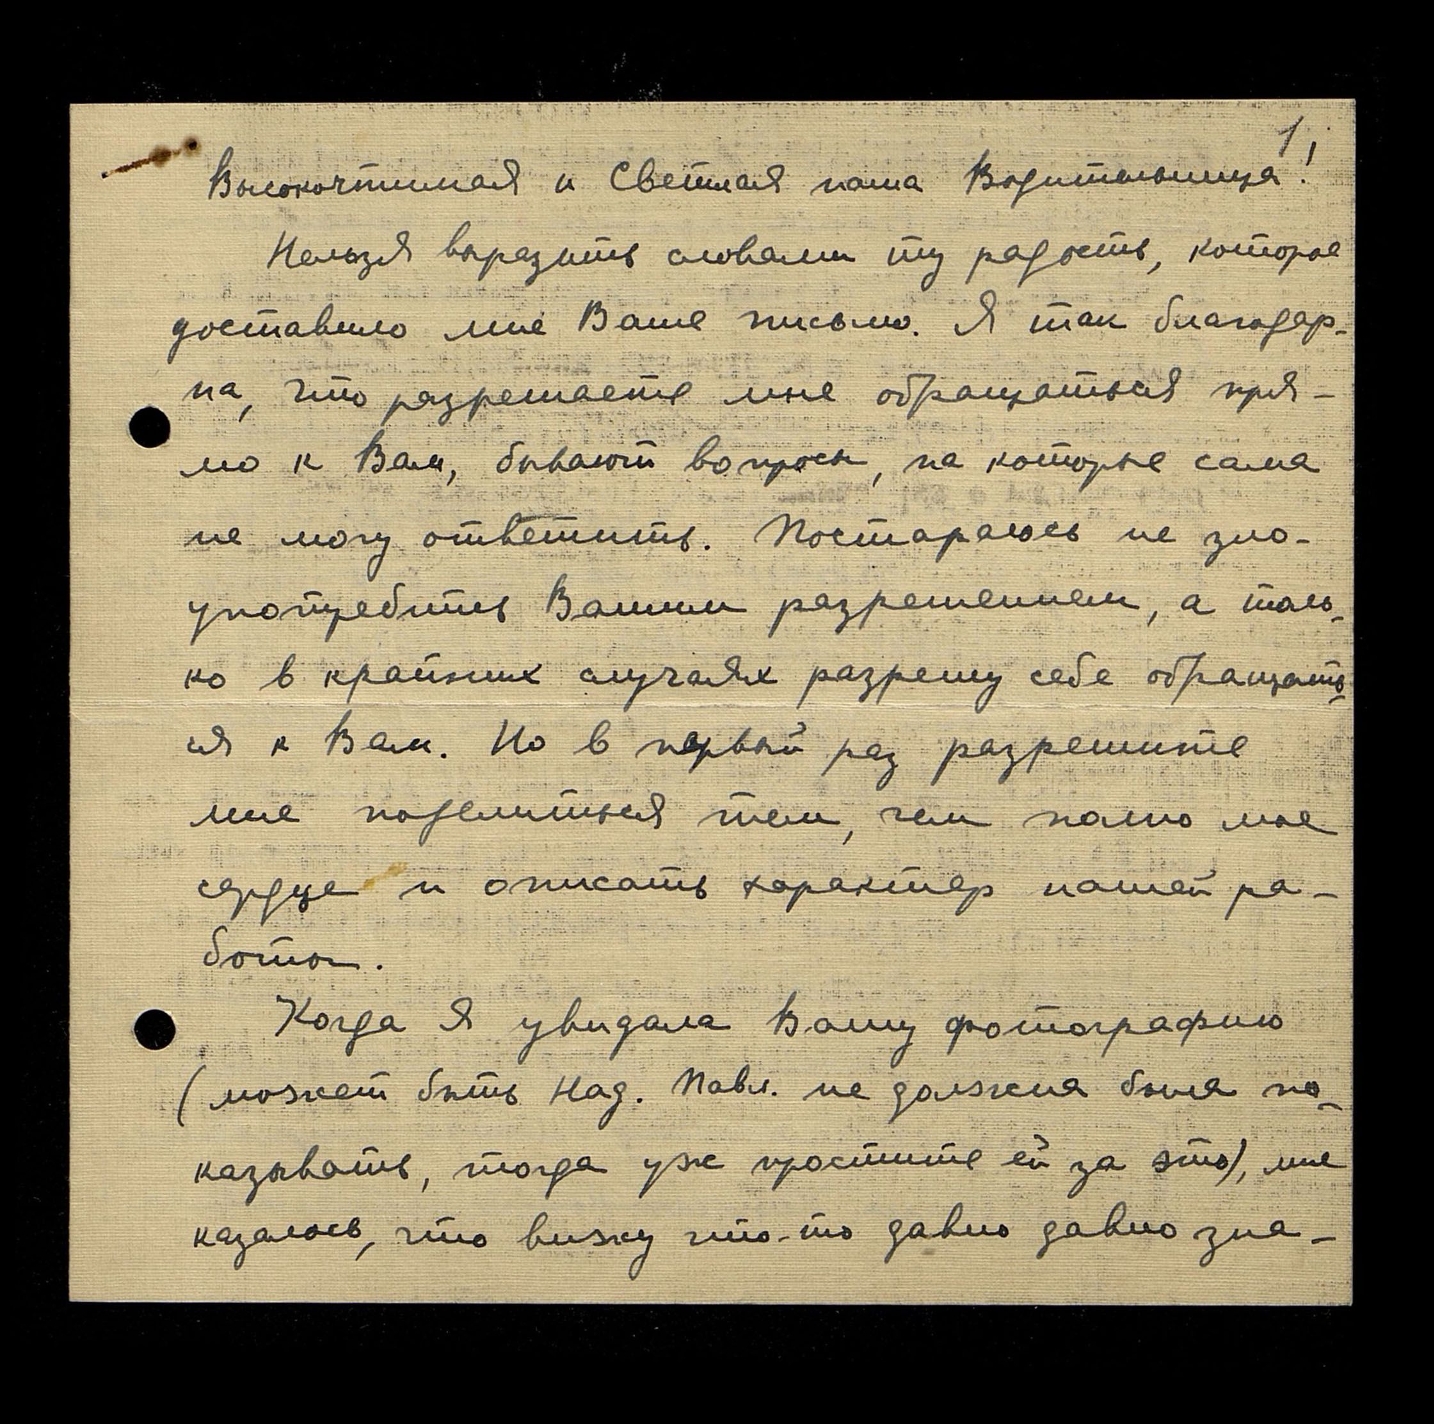 1,
Высокочтимая и Светлая наша Водительница!
Нельзя выразить словами ту радость, которое
доставило мне Ваше письмо. Я так благодар-
на, что разрешаете мне обращаться пря-
мо к Вам, бывают вопросы, на которые сама
не могу ответить. Постараюсь не зло-
употребить Вашим разрешением, а толь-
ко в крайних случаях разрешу себе обращать-
ся к Вам. Но в первый раз разрешите
мне поделиться тем, чем полно мое
сердце и описать характер нашей ра-
боты.
Когда я увидала Вашу фотографию
(может быть Над. Павл. не должна была по-
казывать, тогда уж простите ей за это), мне
казалось, что вижу что-то давно давно зна-